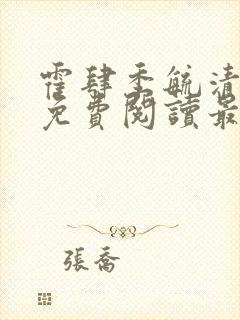 霍肆季毓清
免費閱讀最
張喬